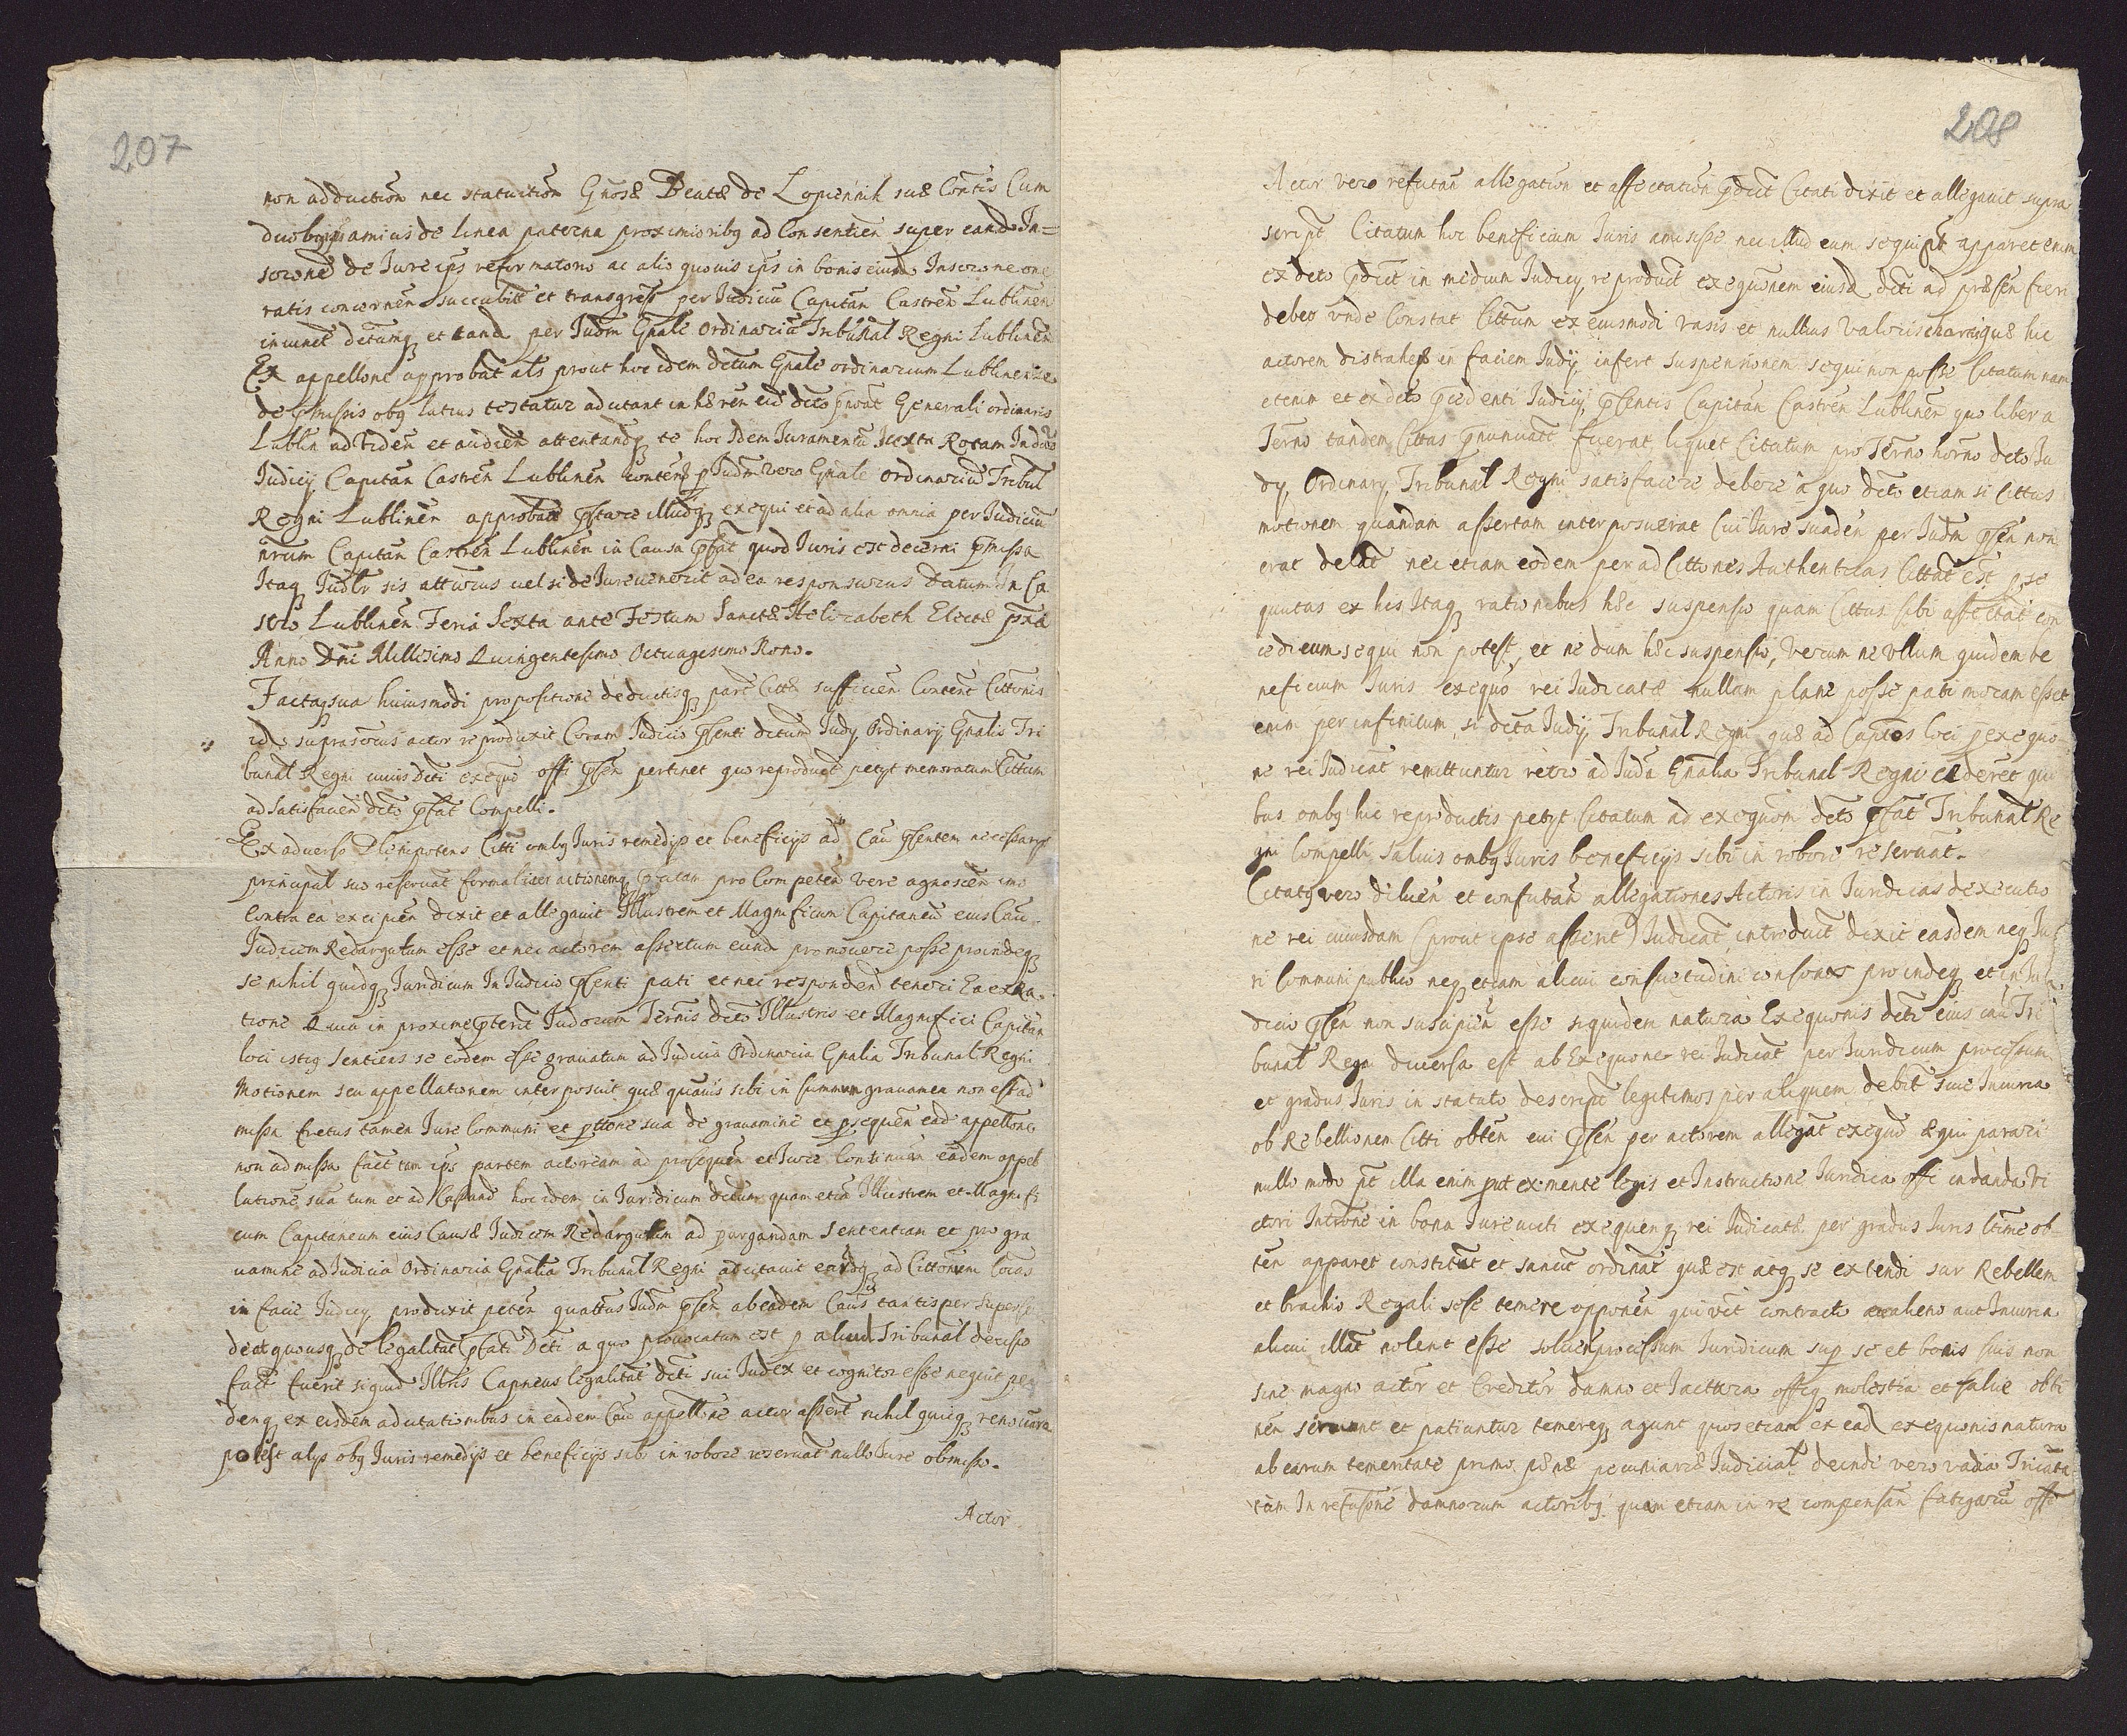 207
non adduction nec statuition Gnosæ Beatæ de Lopiennik suæ Contis Cum
duobus amicis de linea paterna proximioribq ad Consentien super eand In=
scrone de Iure ips reformatorio ac alio quouis ips in bonis eiusd Inscrone one
ratis concernen succubitt et transgress per Iudiciu Capitan Castren Lublinen
inuent detumq et tand per Iudm Gnale Ordinariu Tribunal Regni Lublinen
Ex appellone approbat als prout hoc idem detum Gnale ordinarium Lublinense
de pmissis obq latius testatur
Lublin ad viden et audien attentandq te hoc Idem Iuramentu Iuxta Rotam
Iudicy Capitan Castren Lublinen per Iudm vero Gnale Ordinariu Tribul
Regni Lublinen approbat pstare illudq exequi et ad alia omnia per Iudiciu
nrum Capitan Castren Lublinen in Causa pfat quod Iuris est decerni pmissa
Itaq Iudlr sis atturus uel si de Iure uenerit ad ea responsurus Datum In Ca
stro Lublinen Feria Sexta ante Festum Sanctæ Helizabeth Electæ pxa
Anno Dni Millesimo Quingentesimo Octuagesimo Nono.
Factaqsua huiusmodi propositione deductisq parte Cittæ sufficien Content Cittonis
id suprascrius actor reproduxit Coram Iudicio psenti detum Iudy Ordinarij Gnalis Tri
bunal Regni cuius Deti exequo offi psen pertinet quo reproduct petyt memoratum Cittum
ad Satisfacien deto pfat Compelli.
Ex aduerso Plenipotens Citti ombq Iuris remedijs et beneficijs ad Cau psentem necessarijs
principal suo reseruat formaliter actionemq pro Competen vere agnoscen imo
Contra ea excipien dixit et allegauit Illustrem et Magnificum Capitaneu eius Cau
Iudicem Redargutum esse et nec actorem assertum eund promouere posse proindeq
se nihil quidq Iuridicum In Iudicio psenti pati et nec responden teneri Ea ex Ra
tione Quia in proxime pterit Iudorum Ternis deto Illustris et Magnifici Capitan
loci istiq sentiens se eodem esse grauatum ad Iudicia Ordinaria Gnalia Tribunal Regni
Motionem seu appellationem interposuit quæ quauis sibi in summum grauamen non est ad
missa fretus tamen Iure Communi et pttone sua de grauamine et psequen ead appellone
non admissa fact tam ips partem actoream ad prosequen et Iure Continuan eadem appel
latione sua tum et ad Cassand hoc idem in Iuridicum detum quam etia Illustrem et Magnifi
cum Capitaneum eius Causæ Iudicem Redargutum ad purgandam Sententiam et pro gra
uamine ad Iudicia Ordinaria Gnalia Tribunal Regni adcitauit eandq ad Cittonem locas
in facie Iudicy produxit peten quattus Iudm psen ab eadem Causa tantisper Superse
deat quousq de legalitat pfati Deti a quo prouocatum est p aliud Tribunal decisio
fact fuerit siquid Illris Capneus legalitat deti sui Iudex et cognitor esse nequit pen
denq ex eisdem adcitationibus in eadem Cau appellone actor assert nihil quicq renouare
potest alijs obq Iuris remedijs et beneficijs sibi in robore reseruat nullo Iure obmisso.
Actor
208
Actor vero refutan allegation et affectation pdict Citati dixit et allegauit supra
script Citatum hoc beneficium Iuris amisisse nec illud eum sequi pt apparet enim
ex deto pdict in medium Iudicy reproduct exequonem eiusd deti ad præsen fieri
debere vnde Constat Cittum ex eiusmodi rasis et nullius valoris chartis quæ hic
actorem distrahens in faciem Iudij infert suspensionem sequi non posse Citatum nam
etenim et ex deto pcedenti Iudicij psentis Capitan Castren Lublinen quo libera
Terno tandem Cittas pnunciatt fuerat liquet Citatum pro Terno horno deto Iu
dy Ordinary Tribunal Regni satisfacere debere a quo deto etiam si Cittus
motionem quandam assertam interposuerat Cui Iure suaden per Iudm psen non
erat delat nec etiam eodem per adCittones Authenticas Cittat est pse
quutas ex his Itaq rationibus hæc suspensio quam Cittus sibi affectat con
cedi eum sequi non potest, et ne dum hæc suspensio, verum ne vllum quidem be
neficium Iuris exequo rei Iudicatæ nullam plane posse pati moram esset
enim per infinitum, si deta Iudij Tribunal Regni quæ ad Captos loci p exequo
ne rei Iudicat remittuntur retro ad Iuda Gnalia Tribunal Regni cederet qui
bus ombq hic reproductis petyt Citatum ad exequom deto pfat Tribunal Re
gni Compelli, saluis ombq Iuris beneficijs sibi in robore reseruat.
Citatq vero diluen et confutan allegationes Actoris in Iuridicas de executio
ne rei cuiusdam (prout ipse asserit) Iudicat introduct dixit easdem neq Iu
ri Communi publico neq etiam alicui consuetudini consonas proindeq et in Iu
dicio psen non suscipien esse siquidem natura Exequonis deti eius cau Tri
bunal Regni diuersa est ab Exequone rei Iudicat per Iuridicum processum
et gradus Iuris in statuto descript legitimos per aliquem debit siue Iniuria
ob Rebellionem Citti obten cui psen per actorem allegat exequo æqui parari
nullo modo pt illa enim put ex mente legis et Instructione Iuridica offi in danda vi
ctori Introne in bona Iure victi exequenq rei Iudicatæ per gradus Iuris ltime ob
ten apparet constitut et sancit ordinat quæ est atq se extendi sur Rebellem
et brachio Regali sese temere opponen qui vet contractu aut Iniuria
alicui illat nolent esse soluen processum Iuridicum sup se et bonis suis non
sine magno actor et Creditor damno et Iacttura offiq molestia et obti
nen seruant et patiuntur temereq agunt quos etiam ex ead exequonis natura
ab earum temeritate primo pænæ pecuniariæ Iudicial deindi vero vadia Tricata
tam In refusone damnorum actoribq quam etiam in re compensan fatigaru offi